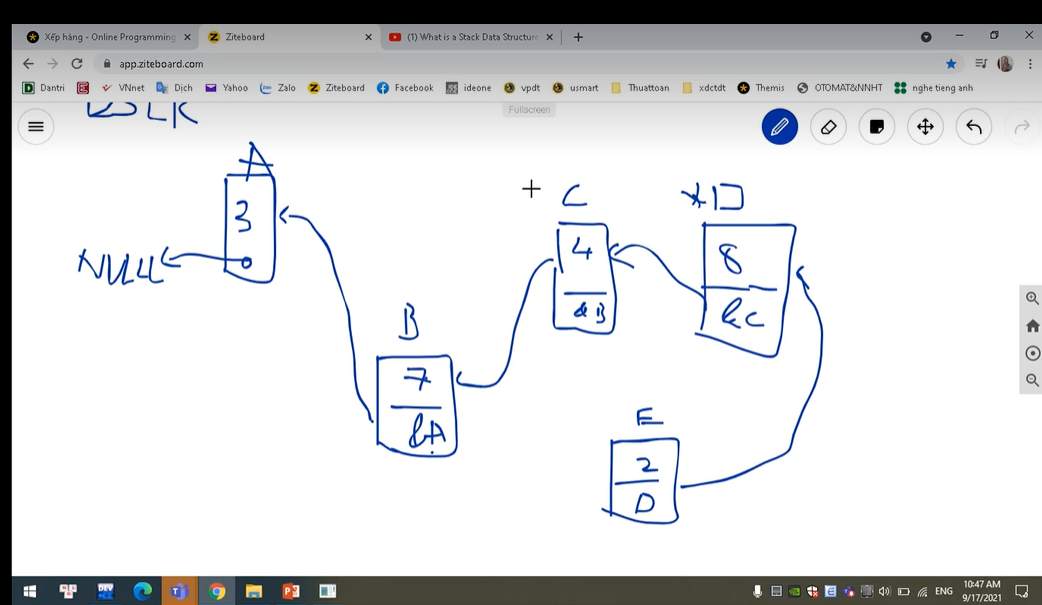 Xếp hàng - Online Programming
Ziteboard
(1) What is a Stack Data Structure
app.ziteboard.com
Dantri
VNnet
Dịch
Yahoo
Zalo
Ziteboard
Facebook
ideone
vpdt
usmart
Thuattoan
xdctdt
Themis
OTOMAT&NNHT
nghe tieng anh
Fullscreen
A
3
NULL
B
7
&A
C
4
&B
*D
8
&C
E
2
D
ENG
10:47 AM
9/17/2021